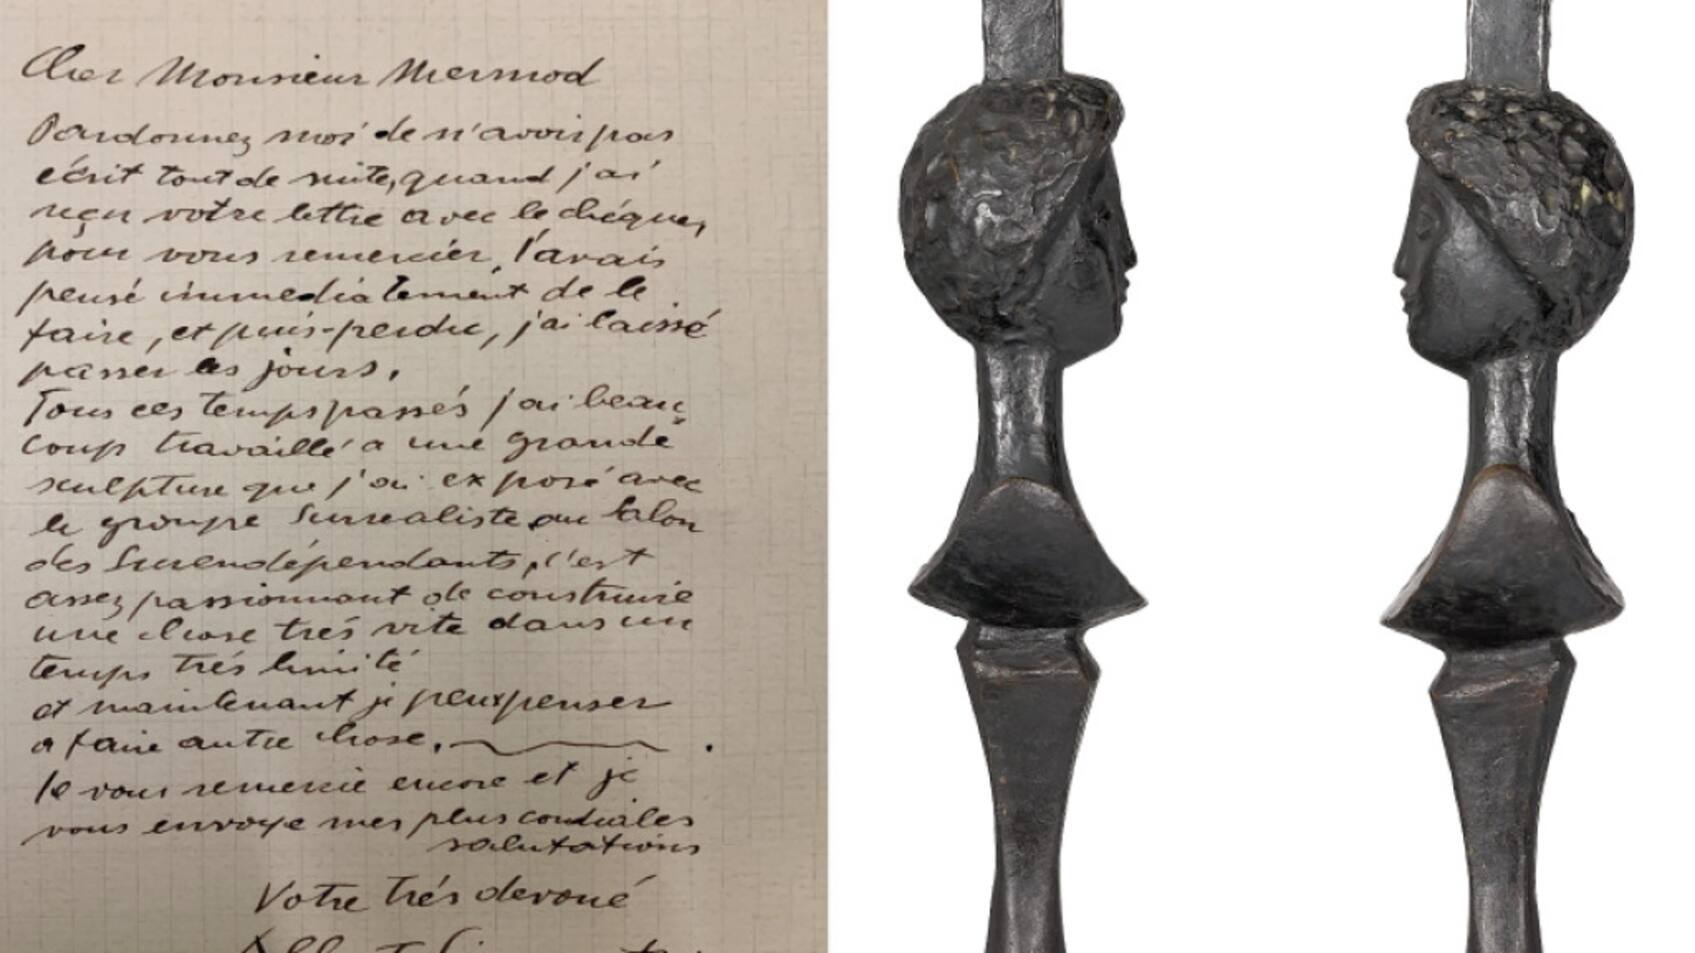 Cher Monsieur Mermod
Pardonnez moi de n'avoir pas
écrit tout de suite, quand j'ai
reçu votre lettre avec le chéque,
pour vous remercier, j'avais
pensé immediatement de le
faire, et puis-perdu, j'ai laissé
passer les jours.
Tous ces temps passés j'ai beau-
coup travaillé a une grande
sculpture que j'ai exposé avec
le groupe Surrealiste au Salon
des Surendépendants, c'est
assez passionnant de construire
une chose trés vite dans un
temps trés limité
et maintenant je peux penser
a faire autre chose.
Je vous remercie encore et je
vous envoye mes plus cordiales
salutations
Votre trés devoué